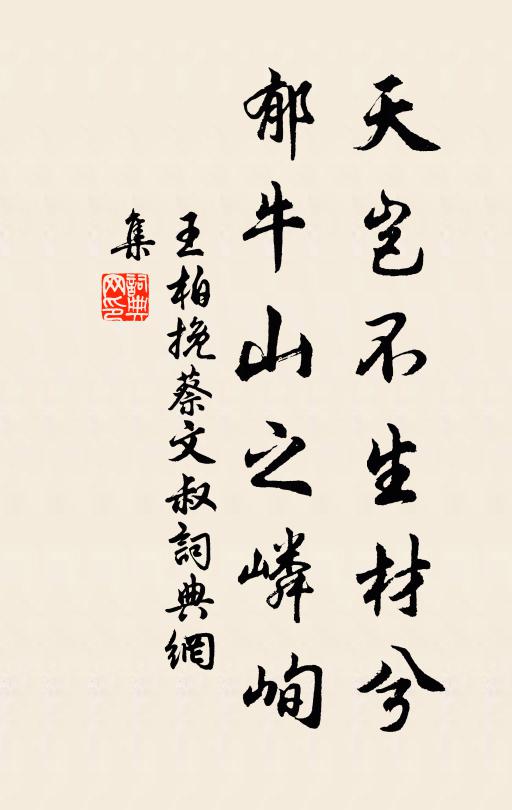 天岂不生材兮
郁牛山之嶙峋
王柏挽蔡文叔詞典網
集
詞典
网印